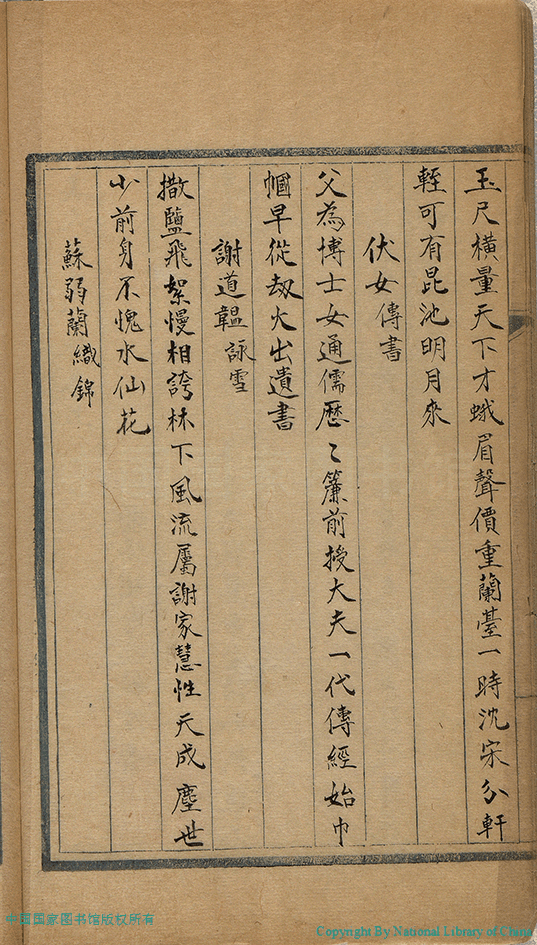 玉尺橫量天下才蛾眉聲價重蘭臺一時沈宋分軒
輊可有昆池明月來
伏女傳書
父為博士女通儒歷〻簾前授大夫一代傳經始巾
幗早從劫火出遺書
謝道韞詠雪
撒鹽飛絮慢相誇林下風流屬謝家慧性天成塵世
少前身不愧水仙花
蘇弱蘭織錦
中國国家图书馆版权所有
Copyright By National Library of China